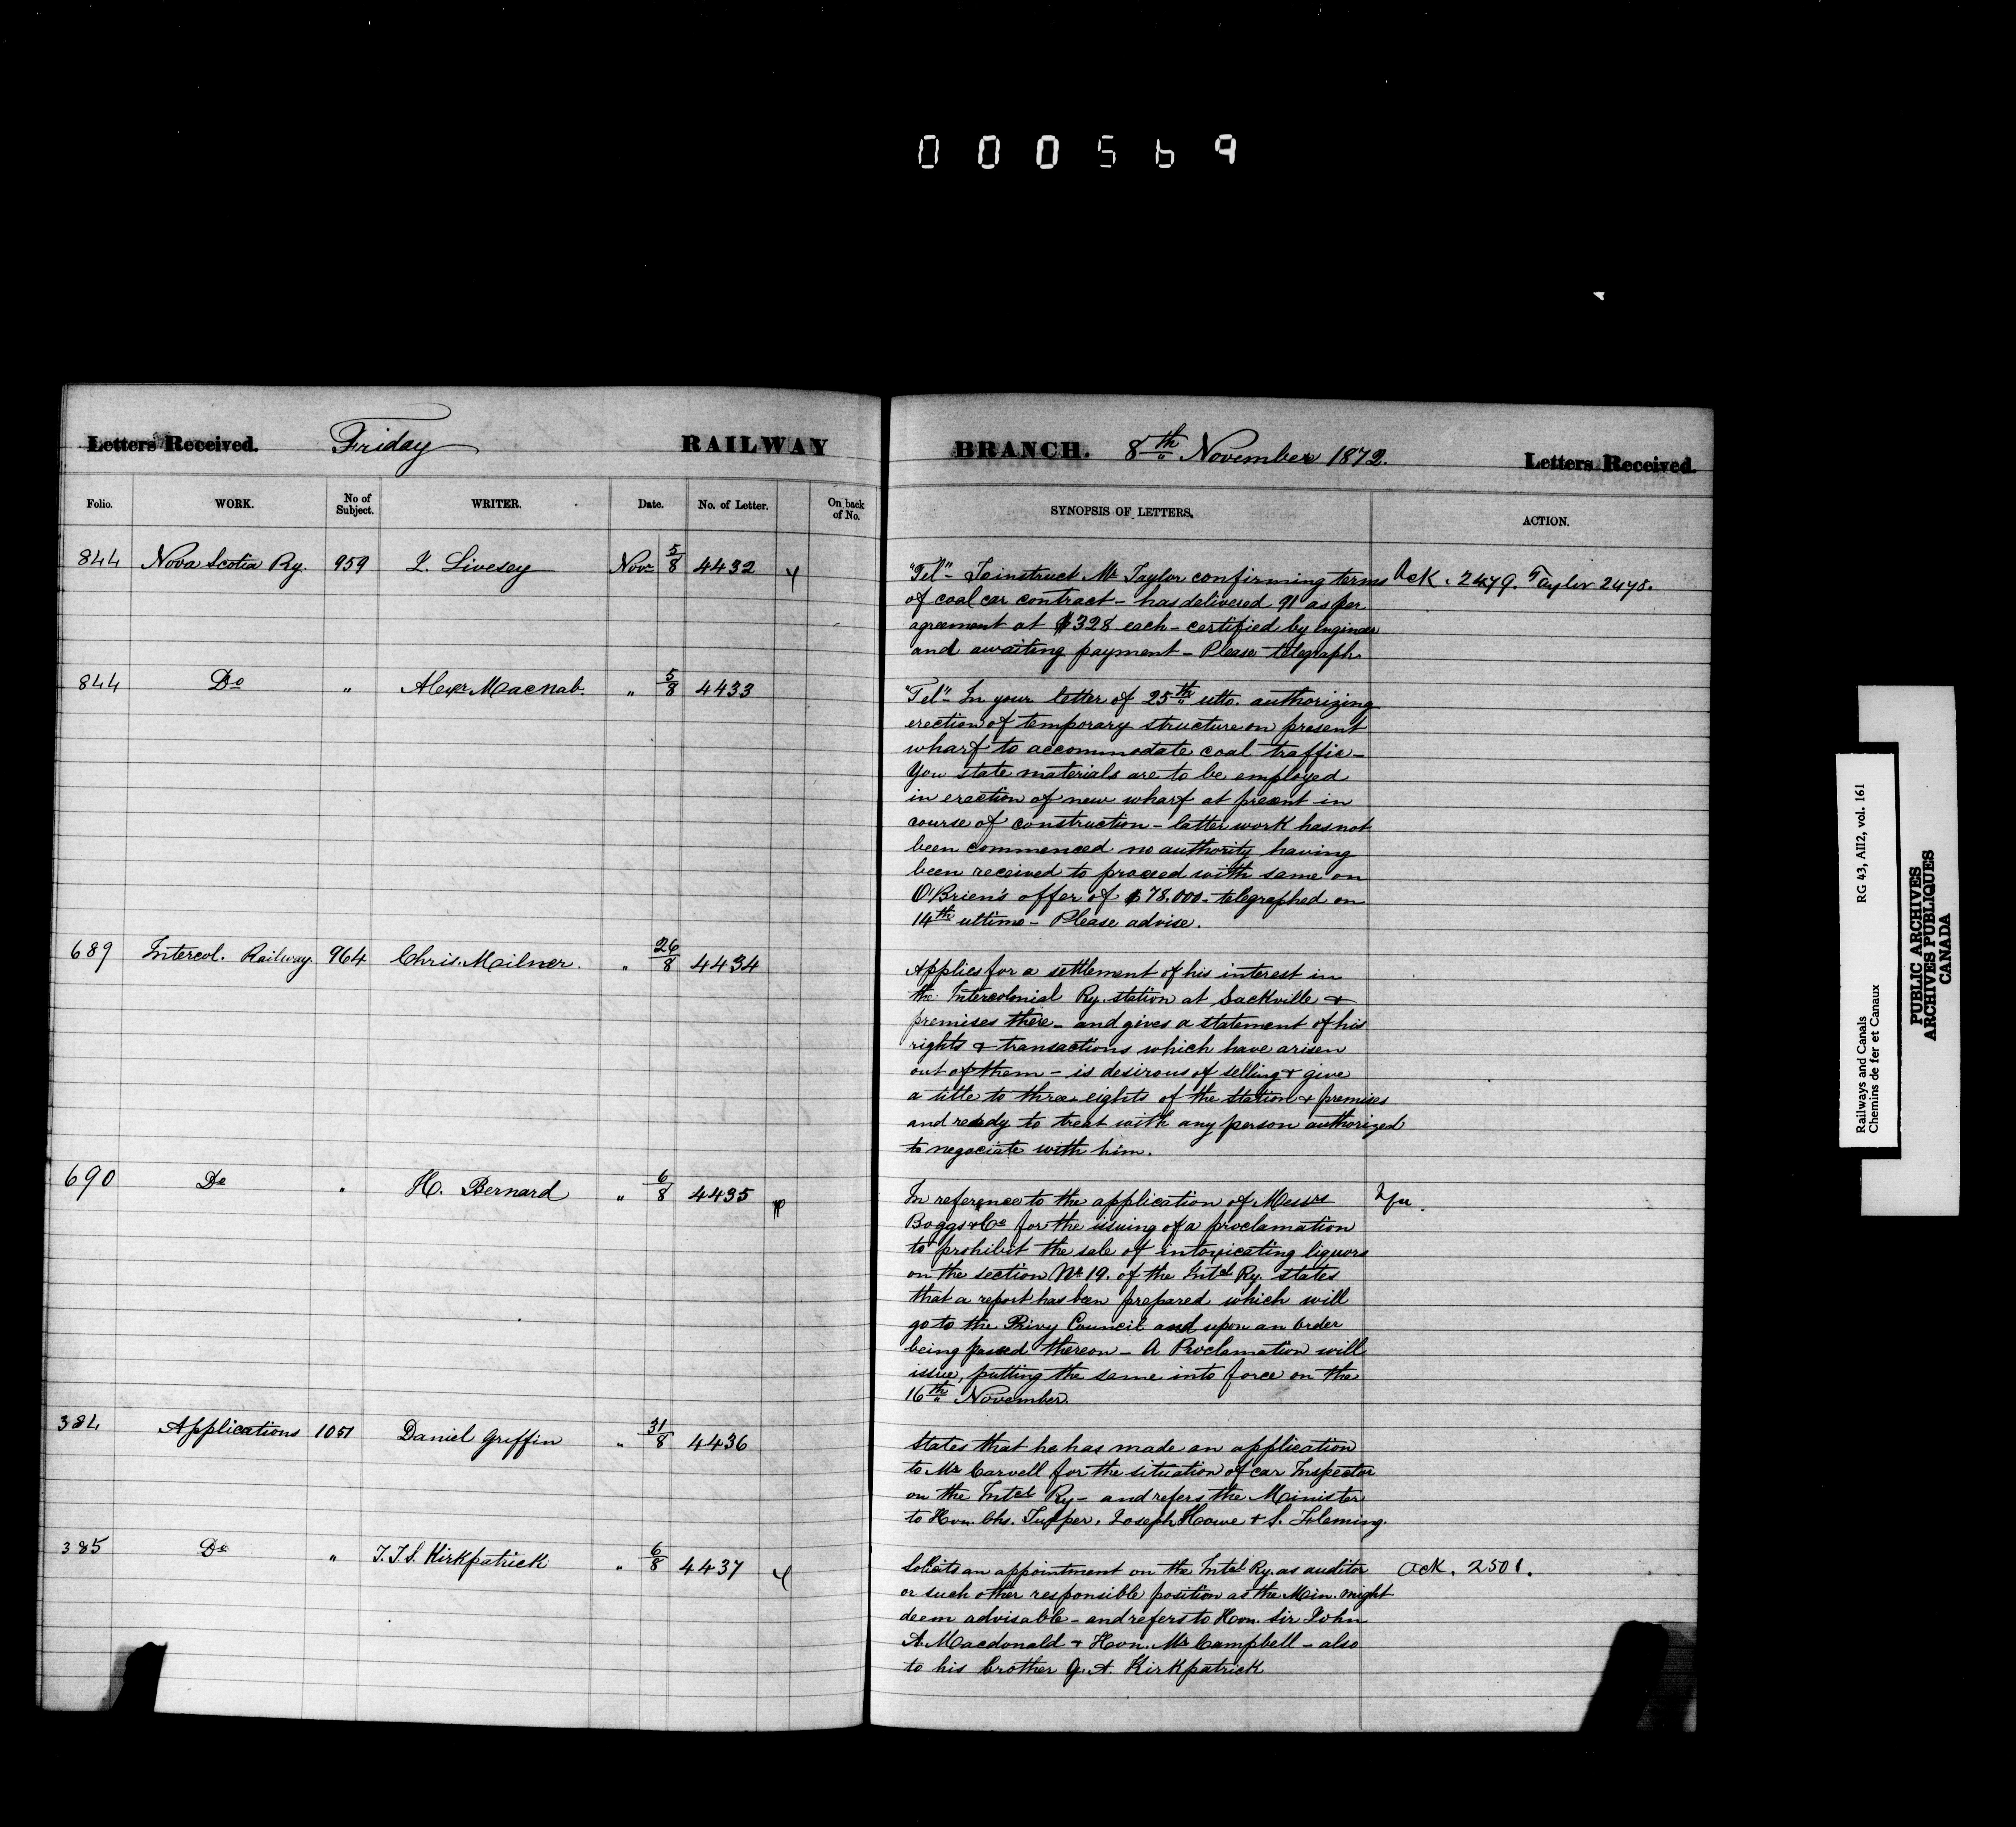 000569
Letters Received. Friday RAILWAY BRANCH. 8th November 1872. Letters Received
Folio. WORK. No of Subject. WRITER. Date. No. of Letter. On back of No. SYNOPSIS OF LETTERS. ACTION.
844 Nova Scotia Ry. 959 J. Livesey Novr 5/8 4432
"Tel" - To instruct Mr Taylor confirming terms
of coal car contract - has delivered 91 as per
agreement at $328 each - certified by Engineer
and awaiting payment - Please telegraph.
Ack. 2479. Taylor 2478.
844 Do " Alexr Macnab. " 5/8 4433
"Tel" - In your letter of 25th ulto. authorizing
erection of temporary structure on present
wharf to accommodate coal traffic -
You state materials are to be employed
in erection of new wharf at present in
course of construction - latter work has not
been commenced no authority having
been received to proceed with same on
O'Brien's offer of $78.000 - telegraphed on
14th ultimo - Please advise.
689 Intercol. Railway. 964 Chris. Milner. " 26/8 4434
Applies for a settlement of his interest in
the Intercolonial Ry. station at Sackville &
premises there - and gives a statement of his
rights & transactions which have arisen
out of them - is desirous of selling & give
a title to three eights of the Station & premises
and ready to treat with any person authorized
to negociate with him.
690 Do " H. Bernard " 6/8 4435
In reference to the application of Messrs
Boggs & Co for the issuing of a proclamation
to prohibit the sale of intoxicating liquors
on the section No 19. of the Intcl Ry. states
that a report has been prepared which will
go to the Privy Council and upon an Order
being passed thereon - A Proclamation will
issue, putting the same into force on the
16th November.
384 Applications 1051 Daniel Griffin " 31/8 4436
States that he has made an application
to Mr Carvell for the situation of car Inspector
on the Intcl Ry - and refers the Minister
to Hon. Chs. Tupper, Joseph Howe & S. Fleming.
385 Do " T.T.S. Kirkpatrick " 6/8 4437
Solicits an appointment on the Intcl Ry. as auditor
or such other responsible position as the Min. might
deem advisable - and refers to Hon. Sir John
A. Macdonald & Hon. Mr Campbell - also
to his brother G. A. Kirkpatrick
Ack. 2501.
Railways and Canals RG 43, AII2, vol. 161
Chemins de fer et Canaux
PUBLIC ARCHIVES
ARCHIVES PUBLIQUES
CANADA